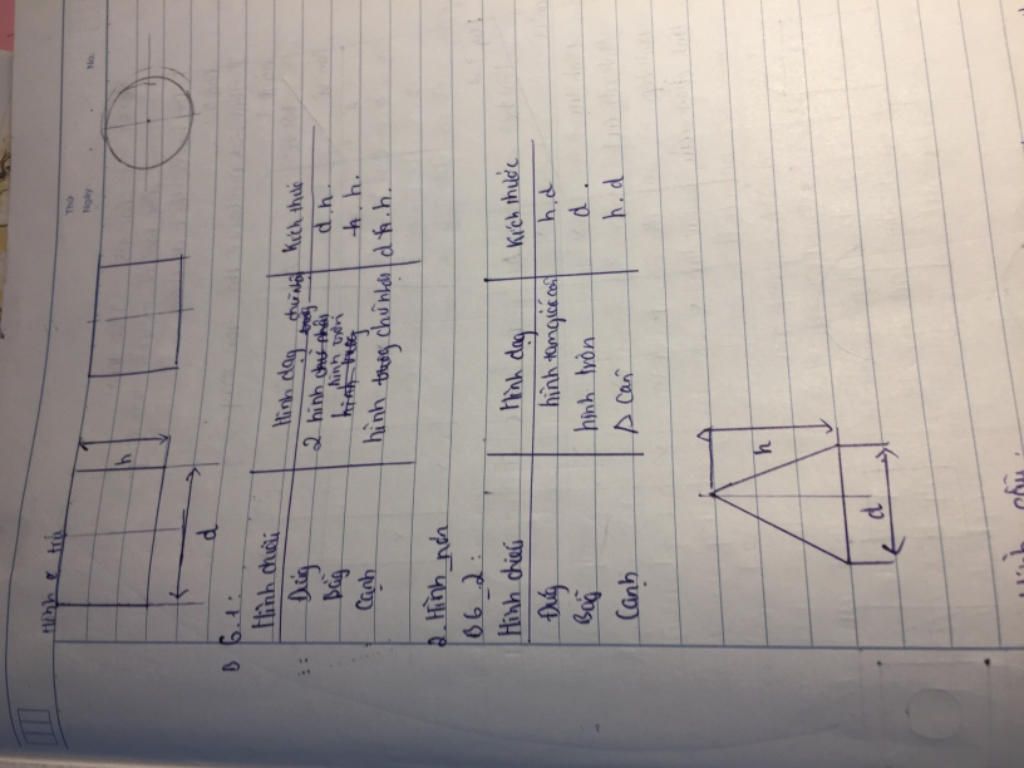 Thứ
Ngày
No.
Hình trụ
h
d
B 6.1:
Hình chiếu Hình dạng Kích thước
Đứg 2 hình chữ nhật d.h.
Bằg hình tròn h.
Cạnh hình chữ nhật d h.
2 Hình nón
B6_2:
Hình chiếu Hình dạg Kích thước
Đứg hình tam giác cân h.d
Bằg hình tròn d.
Cạnh Δ cân h.d
h
d